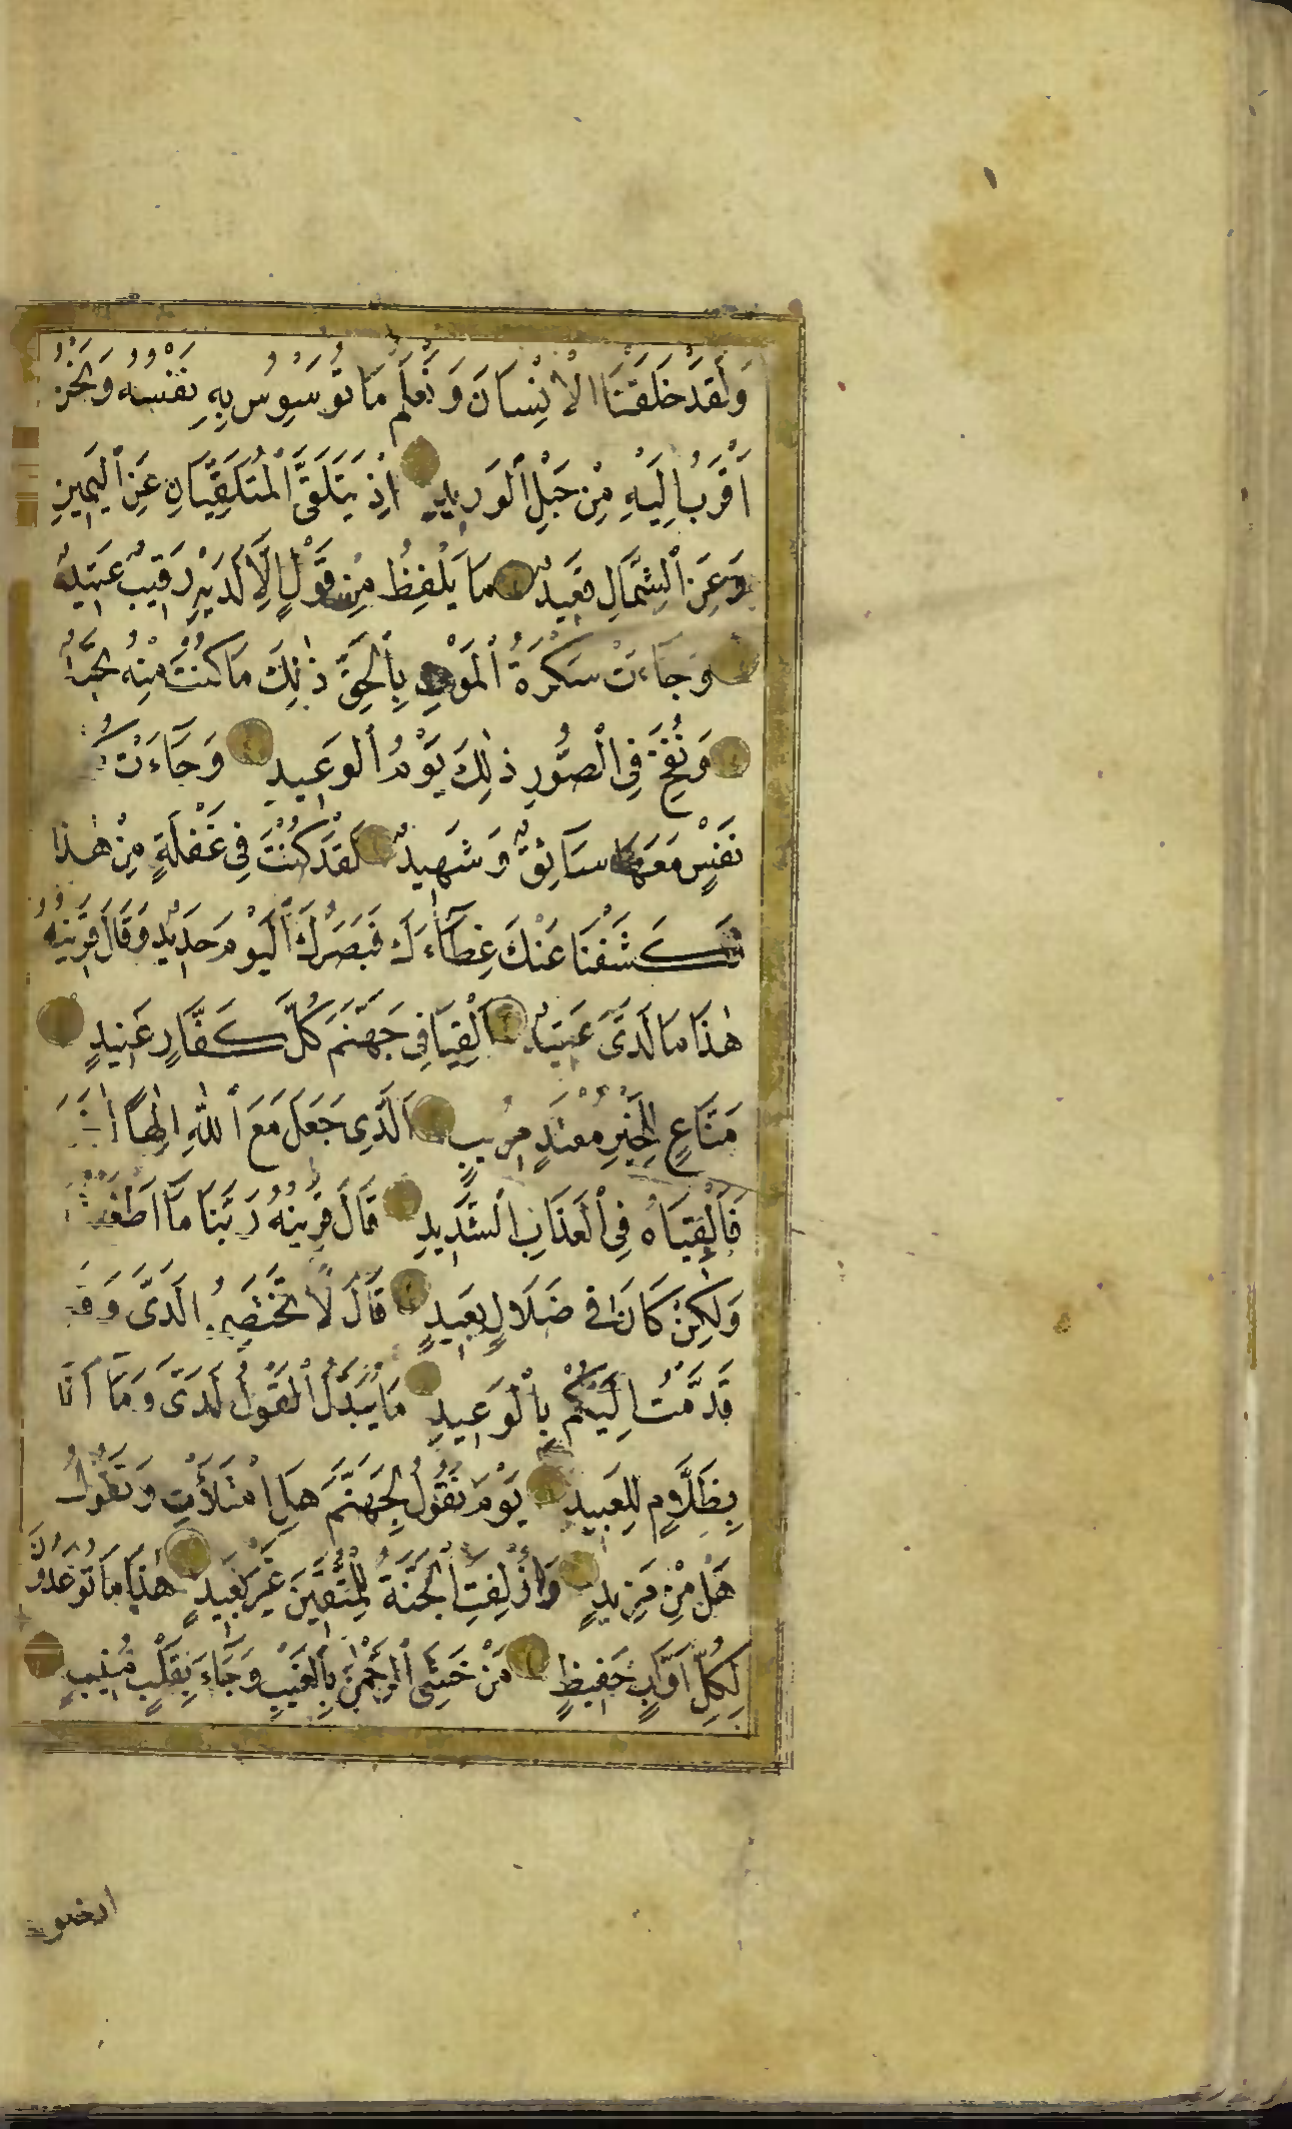 وَلَقَدْ خَلَقْنَا الْاِنْسَانَ وَنَعْلَمُ مَا تُوَسْوِسُ بِهِ نَفْسُهُ وَنَحْنُ
اَقْرَبُ اِلَيْهِ مِنْ حَبْلِ الْوَرِيدِ اِذْ يَتَلَقَّى الْمُتَلَقِّيَانِ عَنِ الْيَمِينِ
وَعَنِ الشِّمَالِ قَعِيدٌ مَا يَلْفِظُ مِنْ قَوْلٍ اِلَّا لَدَيْهِ رَقِيبٌ عَتِيدٌ
وَجَاءَتْ سَكْرَةُ الْمَوْتِ بِالْحَقِّ ذٰلِكَ مَا كُنْتَ مِنْهُ
وَنُفِخَ فِي الصُّورِ ذٰلِكَ يَوْمُ الْوَعِيدِ وَجَآءَتْ
نَفْسٍ مَعَهَا سَائِقٌ وَشَهِيدٌ لَقَدْ كُنْتَ فِي غَفْلَةٍ مِنْ هٰذَا
فَكَشَفْنَا عَنْكَ غِطَآءَكَ فَبَصَرُكَ الْيَوْمَ حَدِيدٌ وَقَالَ قَرِينُهُ
هٰذَا مَا لَدَيَّ عَتِيدٌ اَلْقِيَا فِي جَهَنَّمَ كُلَّ كَفَّارٍ عَنِيدٍ
مَنَّاعٍ لِلْخَيْرِ مُعْتَدٍ مُرِيبٍ اَلَّذِي جَعَلَ مَعَ اللّٰهِ اِلٰهًا
فَاَلْقِيَاهُ فِي الْعَذَابِ الشَّدِيدِ قَالَ قَرِينُهُ رَبَّنَا مَآ اَطْغَيْتُهُ
وَلٰكِنْ كَانَ فِي ضَلَالٍ بَعِيدٍ قَالَ لَا تَخْتَصِمُوا لَدَيَّ وَقَدْ
قَدَّمْتُ اِلَيْكُمْ بِالْوَعِيدِ مَا يُبَدَّلُ الْقَوْلُ لَدَيَّ وَمَآ اَنَا
بِظَلَّامٍ لِلْعَبِيدِ يَوْمَ نَقُولُ لِجَهَنَّمَ هَلِ امْتَلَأْتِ وَتَقُولُ
هَلْ مِنْ مَزِيدٍ وَاُزْلِفَتِ الْجَنَّةُ لِلْمُتَّقِينَ غَيْرَ بَعِيدٍ هٰذَا مَا تُوعَدُونَ
لِكُلِّ اَوَّابٍ حَفِيظٍ مَنْ خَشِيَ الرَّحْمٰنَ بِالْغَيْبِ وَجَآءَ بِقَلْبٍ مُنِيبٍ
ادخلوها